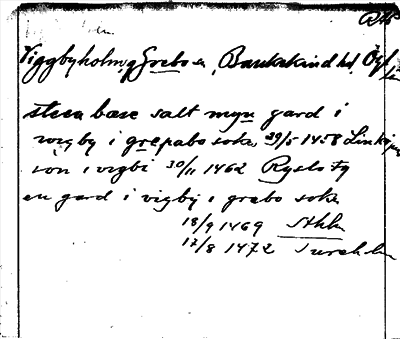 Viggbyholm, Grebo sn, Bankekind hd, Ögl
steen bæse salt myn gard i
wigby i grepabo sokn, 29/5 1458 Linköping
son i vigbi 30/11 1462 Rysloty
en gard i vigby i grebo sokn
18/9 1469 Sthlm
17/8 1472